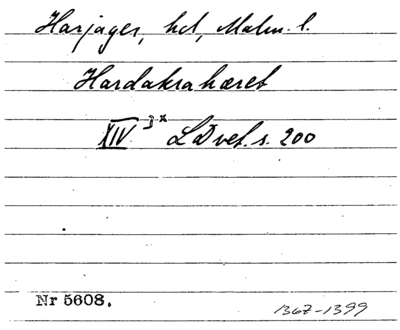 Harjager, hd, Malm. l.
Hardakrahæret
XIV 3x LDvet. s. 200
Nr 5608.
1367-1399